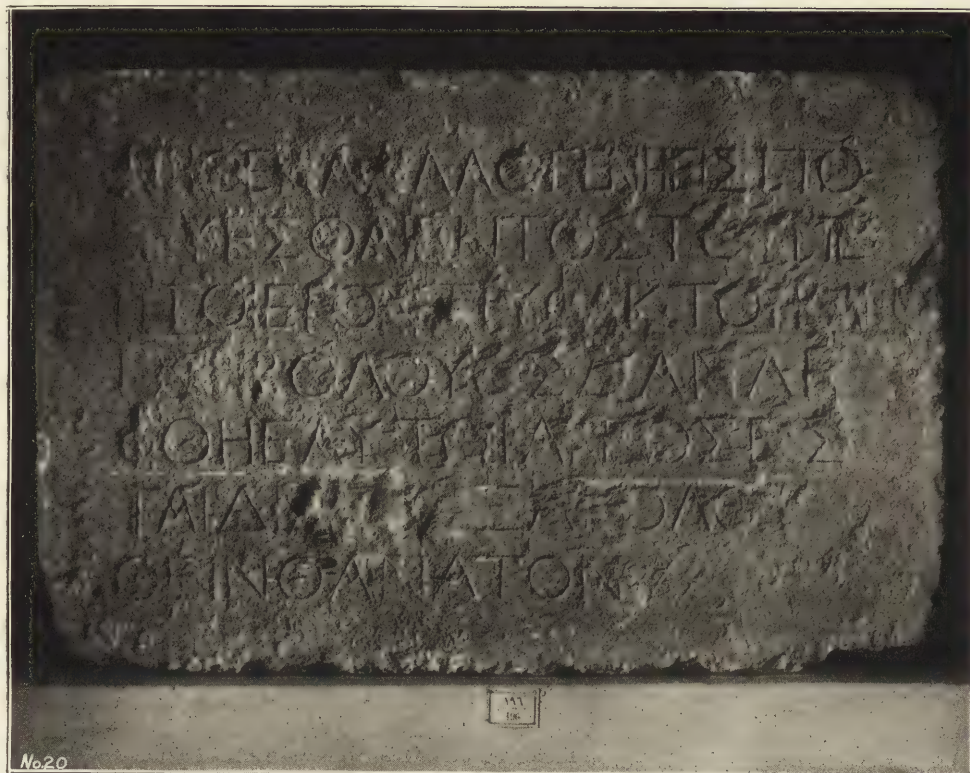 ΜΗΘΕΝΑΑΛΛΟΓΕΝΗΕΙΣΠΟ
ΡΕΥΕΣΘΑΙΕΝΤΟΣΤΟΥΠΕ
ΡΙΤΟΙΕΡΟΝΤΡΥΦΑΚΤΟΥΚΑΙ
ΠΕΡΙΒΟΛΟΥΟΣΔΑΝΛΗ
ΦΘΗΕΑΥΤΩΙΑΙΤΙΟΣΕΣ
ΤΑΙΔΙΑΤΟΕΞΑΚΟΛΟΥ
ΘΕΙΝΘΑΝΑΤΟΝ
١٩٦
196
No.20